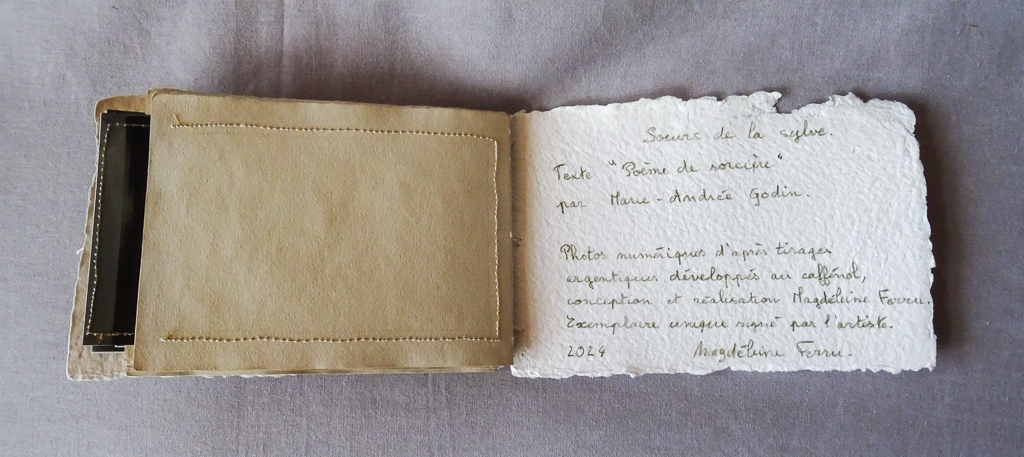 Soeurs de la sylve.
Texte "Poème de sorcière"
par Marie-Andrée Godin.
Photos numériques d'après tirages
argentiques développés au caffénol,
conception et réalisation Magdéleine Ferru.
Exemplaire unique signé par l'artiste.
2024 Magdéleine Ferru.